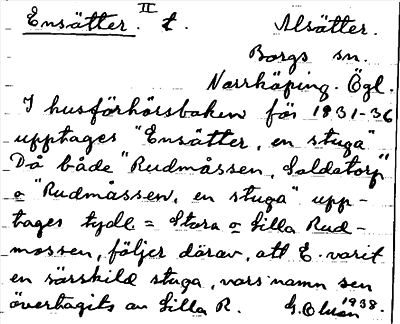 Ensätter. II t. Alsätter.
Borgs sn.
Norrköping. Ögl.
I husförhörsboken för 1831-36
upptages "Ensätter, en stuga"
Då både "Rudmåssen, Soldatorp"
o "Rudmåssen, en stuga" upp-
tages tydl = Stora o Lilla Rud-
mossen, följer därav, att E. varit
en särskild stuga, vars namn sen
övertagits av Lilla R. G. Olson 1938.